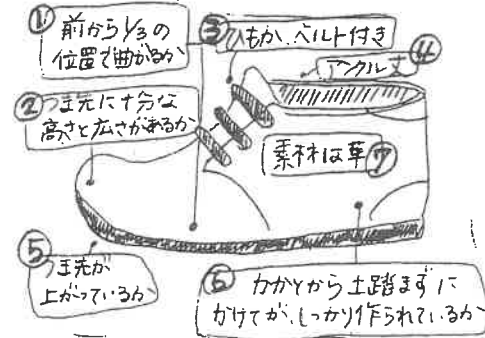 ① 前から1/3の
位置で曲がるか
② つま先に十分な
高さと広さがあるか
③ ひもか、ベルト付き
④ アンクル丈
⑤ つま先が
上がっているか
⑥ かかとから土踏まずに
かけてが、しっかり作られているか
素材は革 ⑦